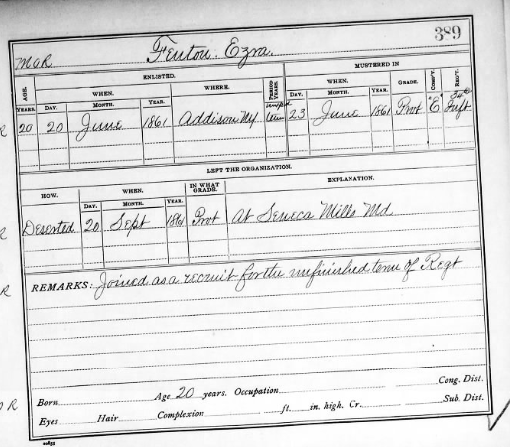 389
M O R Fenton. Ezra.
ENLISTED. MUSTERED IN
AGE. WHEN. WHERE. PERIOD YEARS. WHEN. GRADE. COMP'Y. REG'T.
YEARS. DAY. MONTH. YEAR. DAY. MONTH. YEAR.
20 20 June 1861 Addison NY 23 June 1861 Pvt "E" Inft
LEFT THE ORGANIZATION.
HOW. WHEN. IN WHAT GRADE. EXPLANATION.
DAY. MONTH. YEAR.
Deserted 20 Sept 1861 Pvt At Seneca Mills Md
REMARKS: Joined as a recruit for the unfinished term of Regt
Born Age 20 years. Occupation Cong. Dist.
Eyes Hair Complexion ft. in. high. Cr. Sub. Dist.